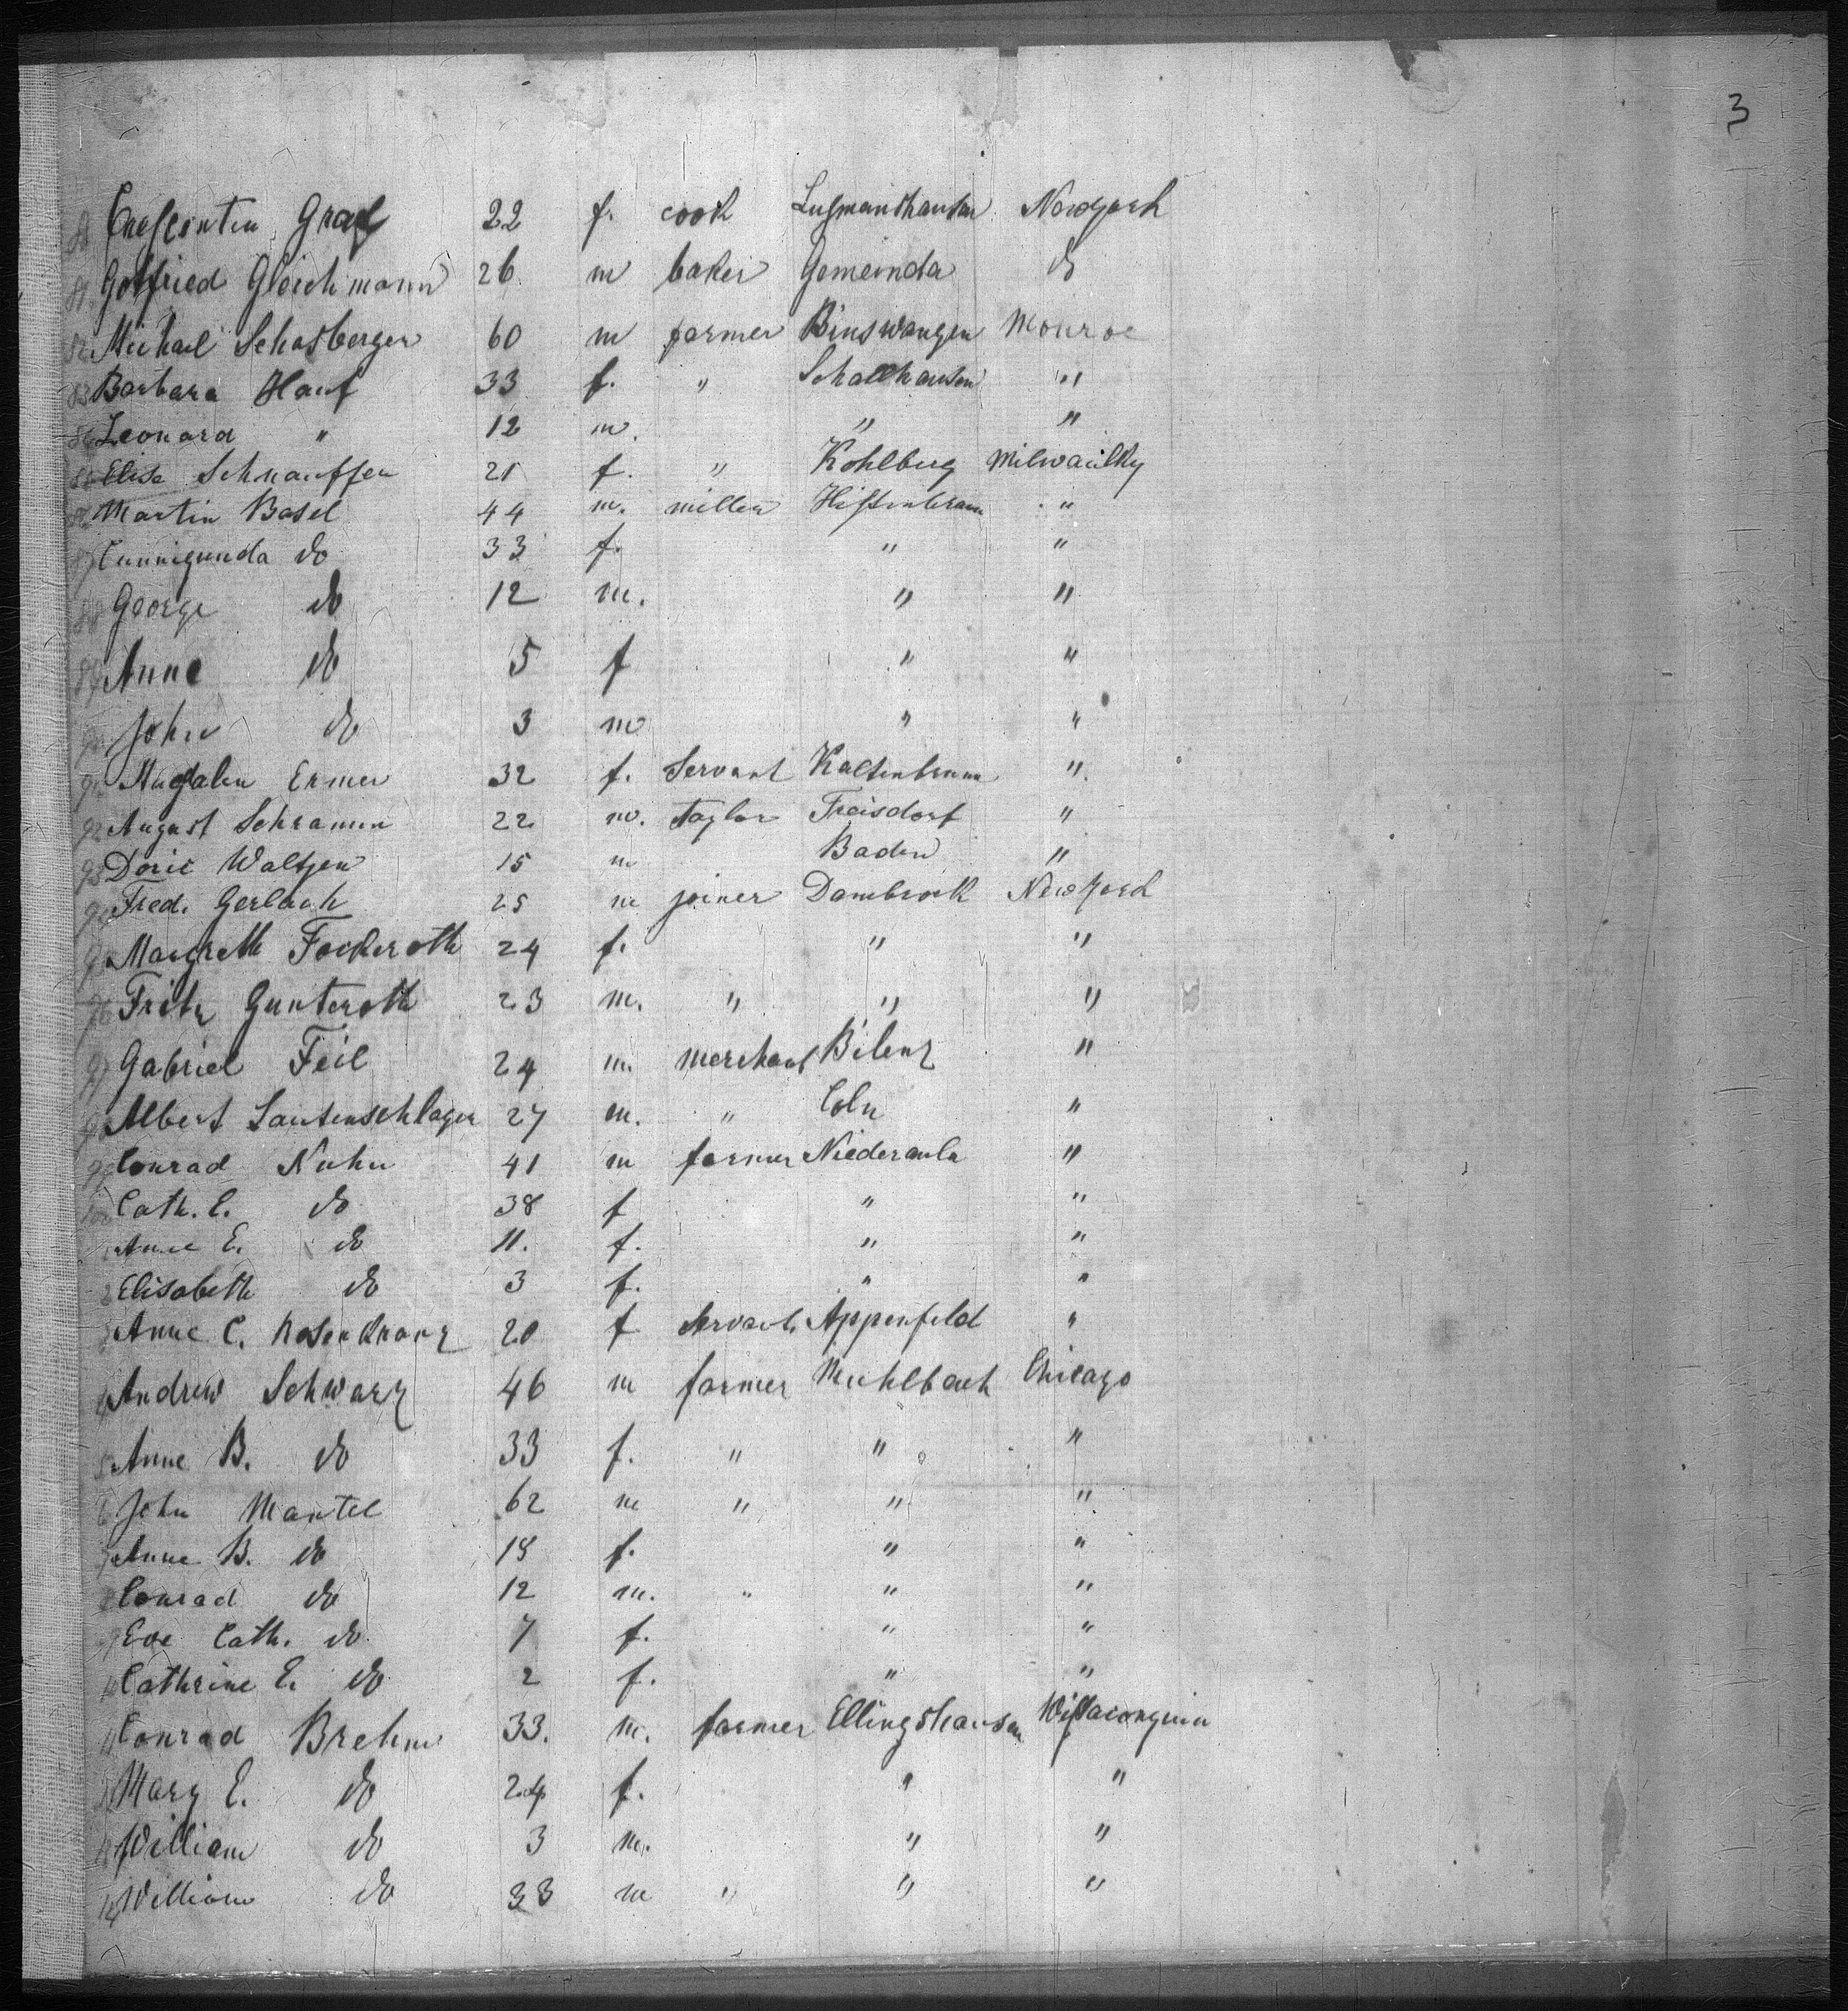 3
Graf 22 f. cook Newyork
81 Gotfried Gleichmann 26 m baker Gemeinda do
82 Michael Schasberger 60 m farmer Binswangen Monroe
83 Barbara Hauf 33 f. " Schallhausen "
84 Leonard " 12 m. " "
85 Elise Schnauffer 21 f. " Kohlberg Milwaulky
86 Martin Basel 44 m. miller "
87 Cunnigunda do 33 f. " "
88 George do 12 m. " "
89 Anne do 5 f " "
90 John do 3 m " "
91 Magdalen Ermer 32 f. Servant Kaltenbrunn "
92 August Schramm 22 m. Taylor Freisdorf "
93 Doric Waltjen 15 m Baden "
94 Fred. Gerlach 25 m joiner Dambrock Newyork
95 Margreth Fockeroth 24 f. " "
96 Fritz Gunteroth 23 m. " " "
97 Gabriel Feil 24 m. merchant Bilenz "
98 Albert Lautenschlager 27 m. " Coln "
99 Conrad Nuhn 41 m farmer Niederaula "
100 Cath. E. do 38 f " "
1 Anne E. do 11. f. " "
2 Elisabeth do 3 f. " "
3 Anne C. Rosenkranz 20 f Servant. Appenfeld "
4 Andrew Schwarz 46 m farmer Muhlbach Chicago
5 Anne B. do 33 f. " " "
6 John Mantel 62 m " " "
7 Anne B. do 18 f. " "
8 Conrad do 12 m. " " "
9 Eve Cath. do 7 f. " "
10 Cathrine E. do 2 f. " "
11 Conrad Brehm 33. m. farmer Ellingshausen
12 Mary E. do 24 f. " "
13 William do 3 m. " "
14 William do 33 m " " "